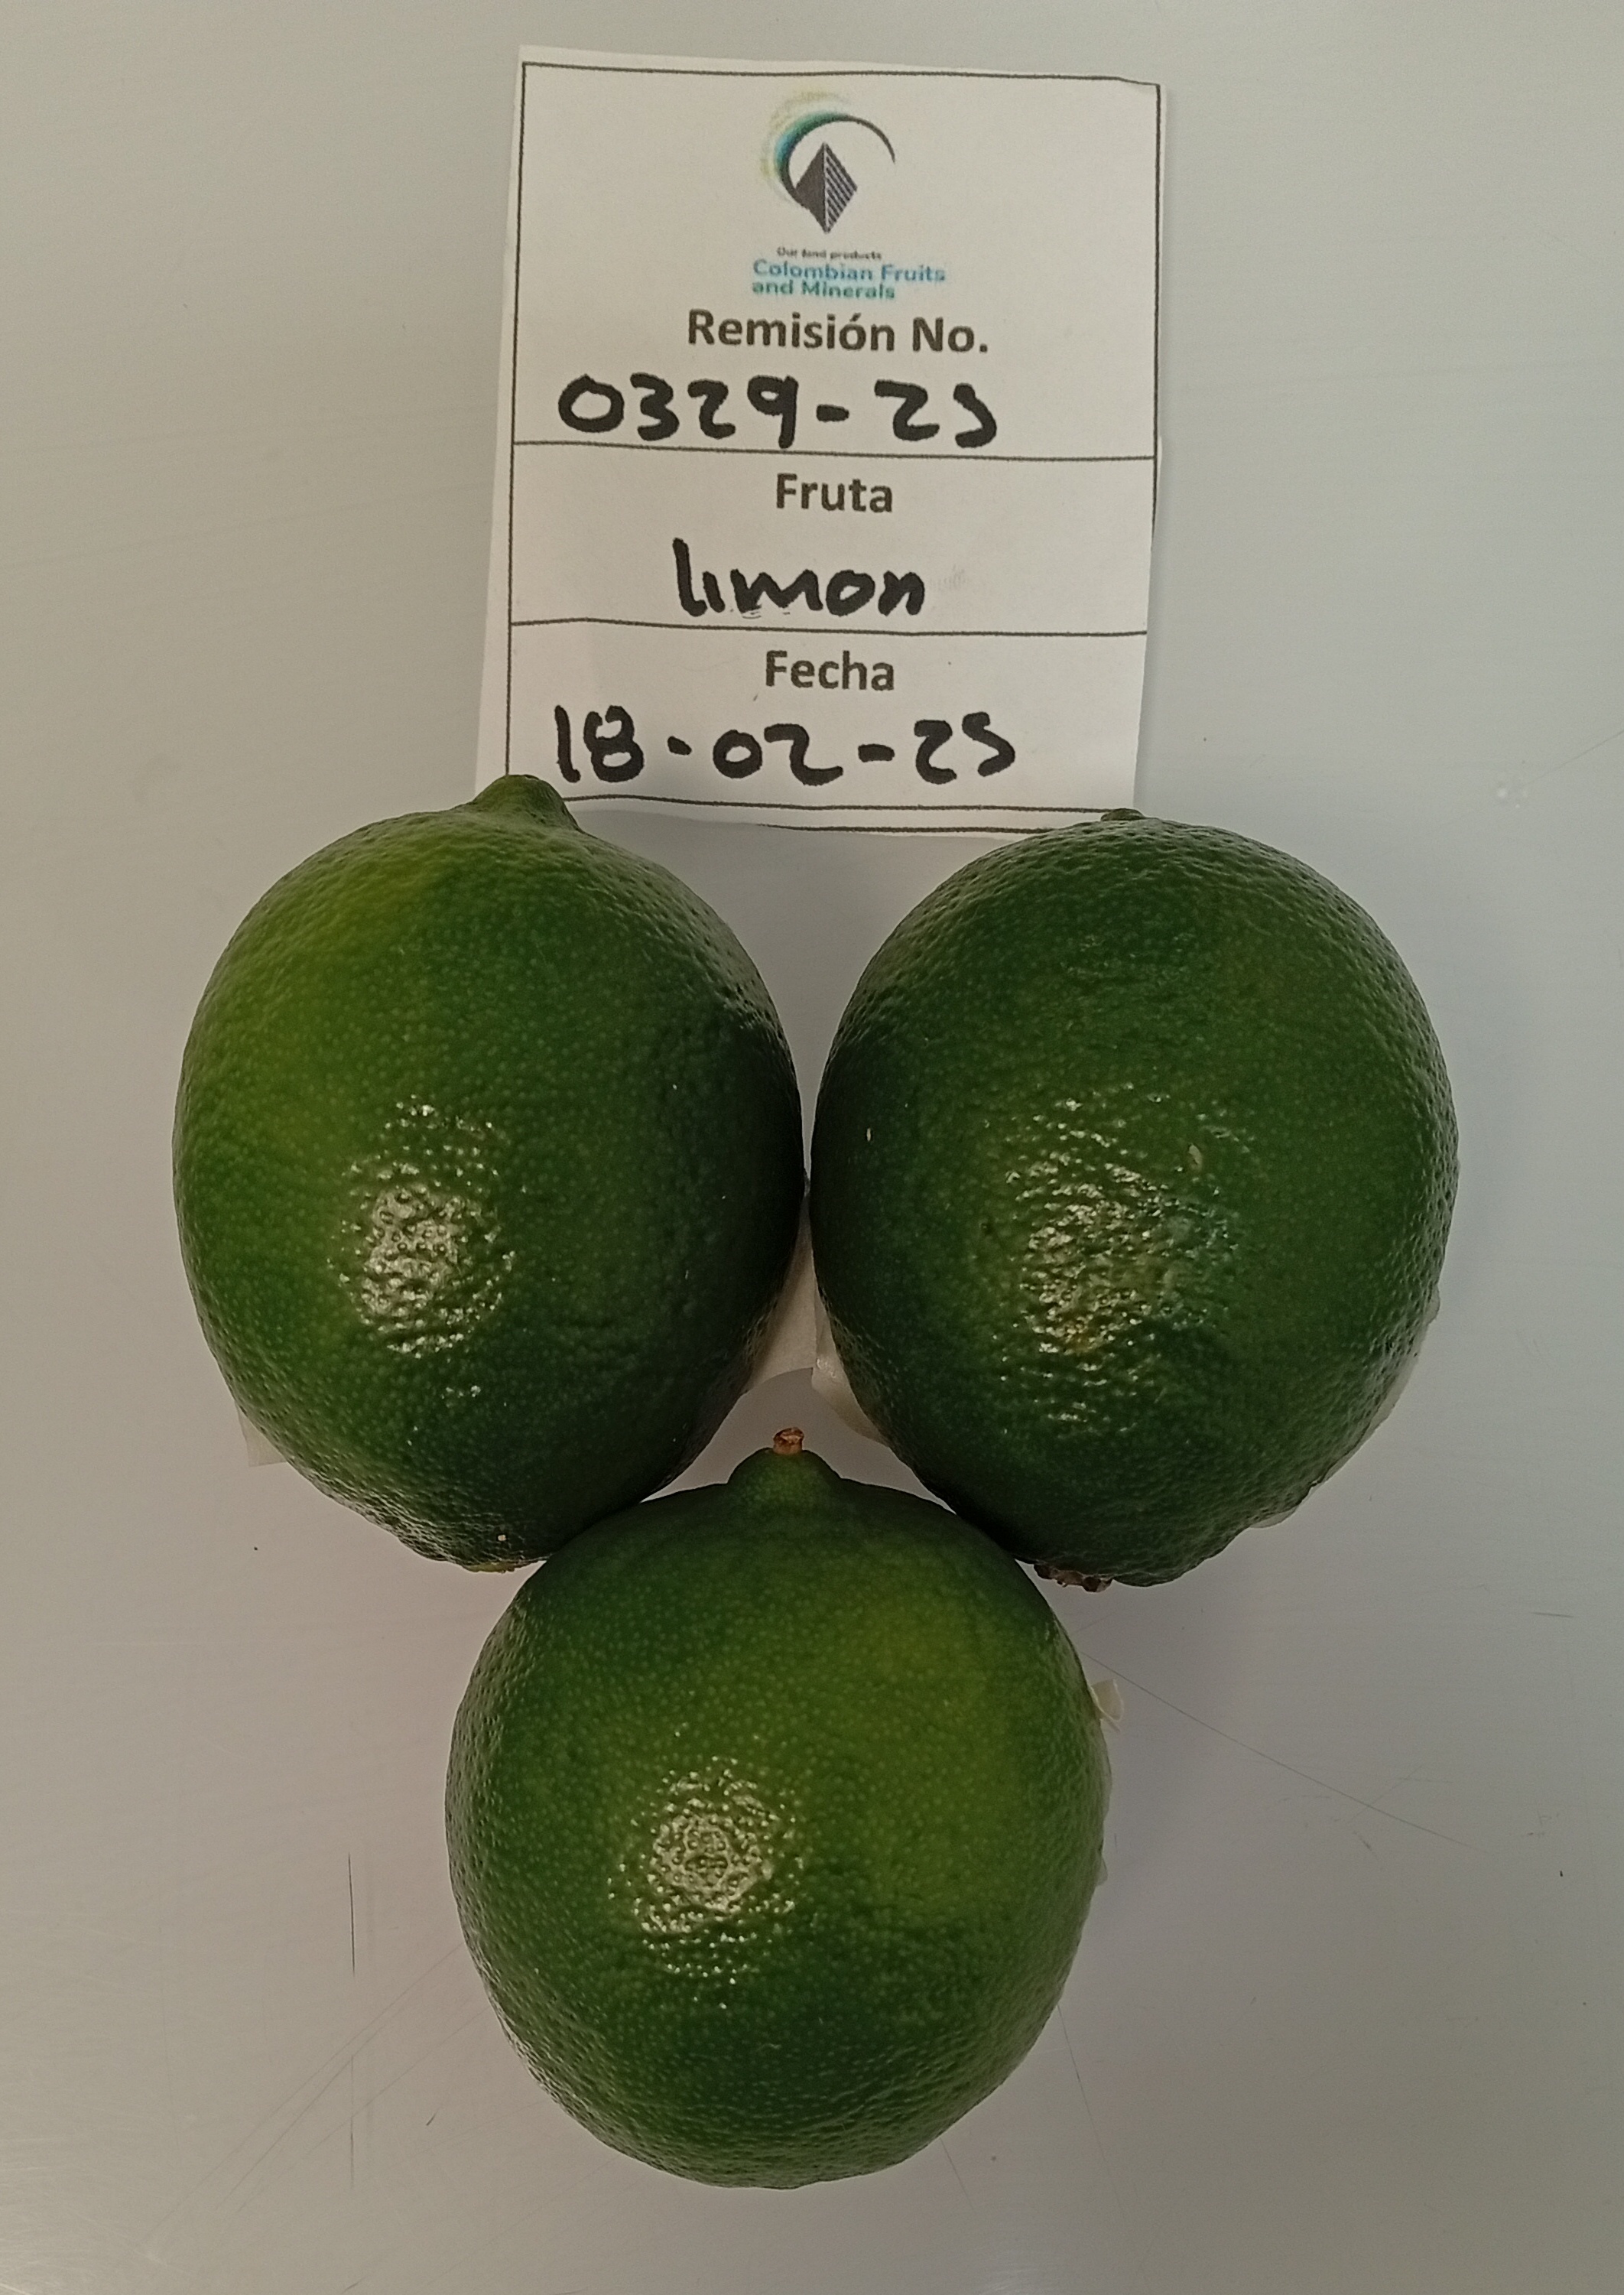 Our land products
Colombian Fruits
and Minerals
Remisión No.
0329-25
Fruta
limon
Fecha
18-02-25